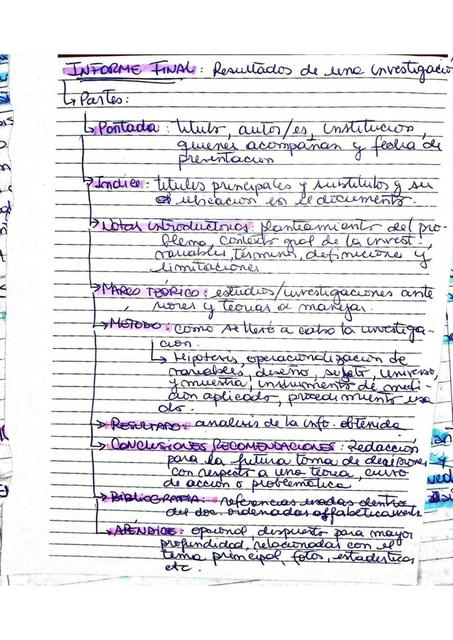 INFORME FINAL: Resultados de una investigació
Partes:
Portada: título, autor/es, institución,
quienes acompañan y fecha de
presentación
Indice: títulos principales y subtítulos y su
ubicación en el documento.
Notas introductorias: planteamiento del pro-
blema, contexto gral de la invest.,
variables, términos, definiciones y
limitaciones
MARCO TEÓRICO: estudios/investigaciones ante
riores y teorías a manejar.
MÉTODO: como se llevó a cabo la investiga-
ción.
Hipótesis, operacionalización de
variables, diseño, sujeto, universo,
y muestra, instrumentos de medi-
ción aplicado, procedimiento usa
do.
RESULTADO: análisis de la info. obtenida
CONCLUSIONES RECOMENDACIONES: Redacción
para la futura toma de decisiones
con respecto a una teoría, curso
de acción o problemática
BIBLIOGRAFIA: referencias usadas dentro
del doc. ordenadas alfabéticamente
APÉNDICE: opcional, dispuesto para mayor
profundidad, relacionadas con el
tema principal, fotos, estadísticas
etc.